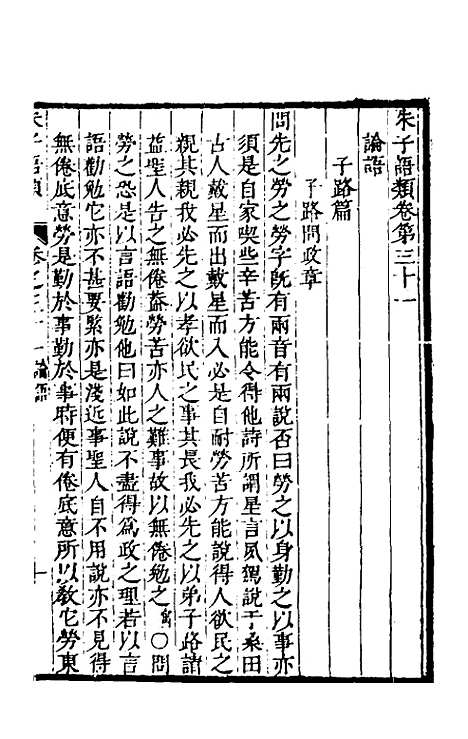 朱子語類卷第三十一
論語
子路篇
子路問政章
問先之勞之勞字旣有兩音有兩說否曰勞之以身勤之以事亦
須是自家喫些辛苦方能令得他詩所謂星言夙駕說于桑田
古人戴星而出戴星而入必是自耐勞苦方能說得人欲民之
親其親我必先之以孝欲民之事其長我必先之以弟子路請
益聖人告之無倦葢勞苦亦人之難事故以無倦勉之㝢〇問
勞之恐是以言語勸勉他曰如此說不盡得爲政之理若以言
語勸勉它亦不甚要緊亦是淺近事聖人自不用說亦不見得
無倦底意勞是勤於事勤於事時便有倦底意所以敎它勞東
朱子語類 卷之三十一 論語 一